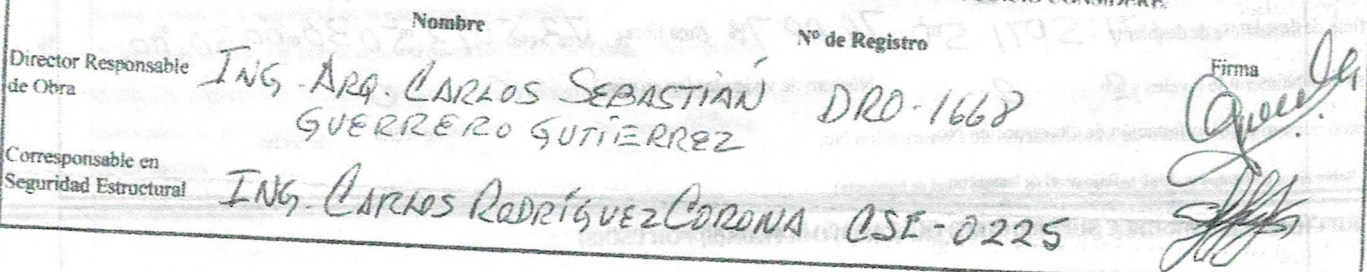 Nombre Nº de Registro Firma
Director Responsable de Obra ING. ARQ. CARLOS SEBASTIÁN DRO-1668
GUERRERO GUTIERREZ
Corresponsable en
Seguridad Estructural ING. CARLOS RODRÍGUEZ CORONA CSE-0225